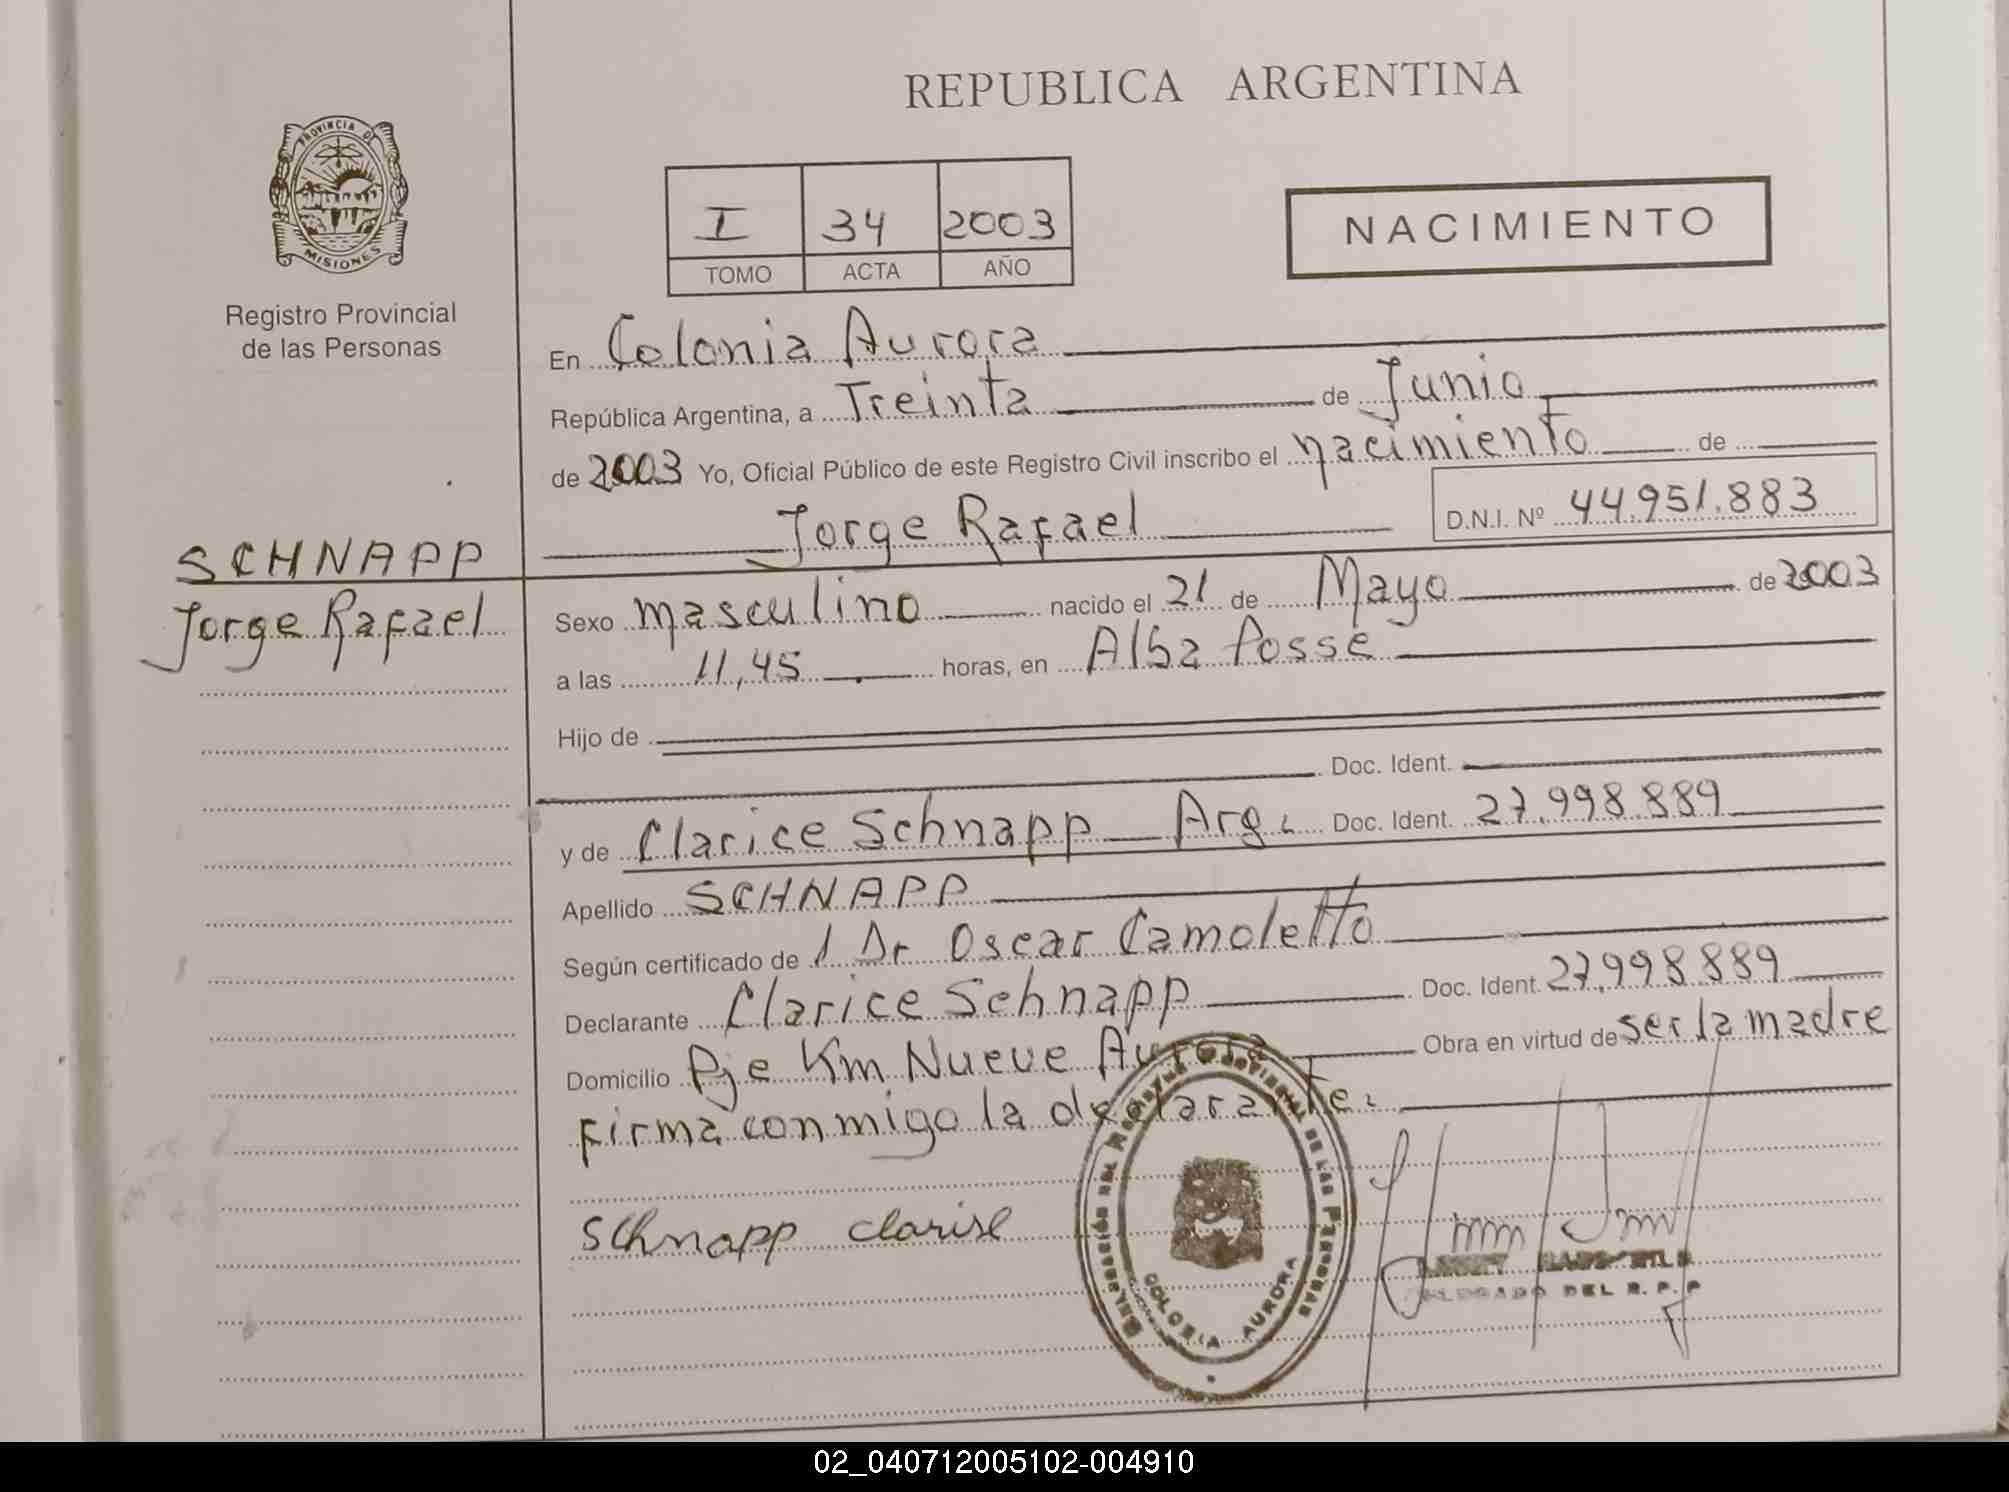 REPUBLICA ARGENTINA
PROVINCIA DE
MISIONES
Registro Provincial
de las Personas
I 34 2003
TOMO ACTA AÑO
NACIMIENTO
En Colonia Aurora
República Argentina, a Treinta de Junio
de 2003 Yo, Oficial Público de este Registro Civil inscribo el nacimiento de
Jorge Rafael D.N.I. Nº 44.951.883
SCHNAPP
Jorge Rafael
Sexo masculino nacido el 21 de Mayo de 2003
a las 11,45 horas, en Alba Posse
Hijo de
Doc. Ident.
y de Clarice Schnapp Arg. Doc. Ident. 27.998.889
Apellido SCHNAPP
Según certificado de l Dr Oscar Camoletto
Declarante Clarice Schnapp Doc. Ident. 27.998.889
Domicilio Pje Km Nueve Aurora Obra en virtud de ser la madre
firma conmigo la declarante.
Schnapp clarise
DEL REGISTRO PROVINCIAL DE LAS PERSONAS
COLONIA AURORA
DELEGADO DEL R.P.P
02_040712005102-004910